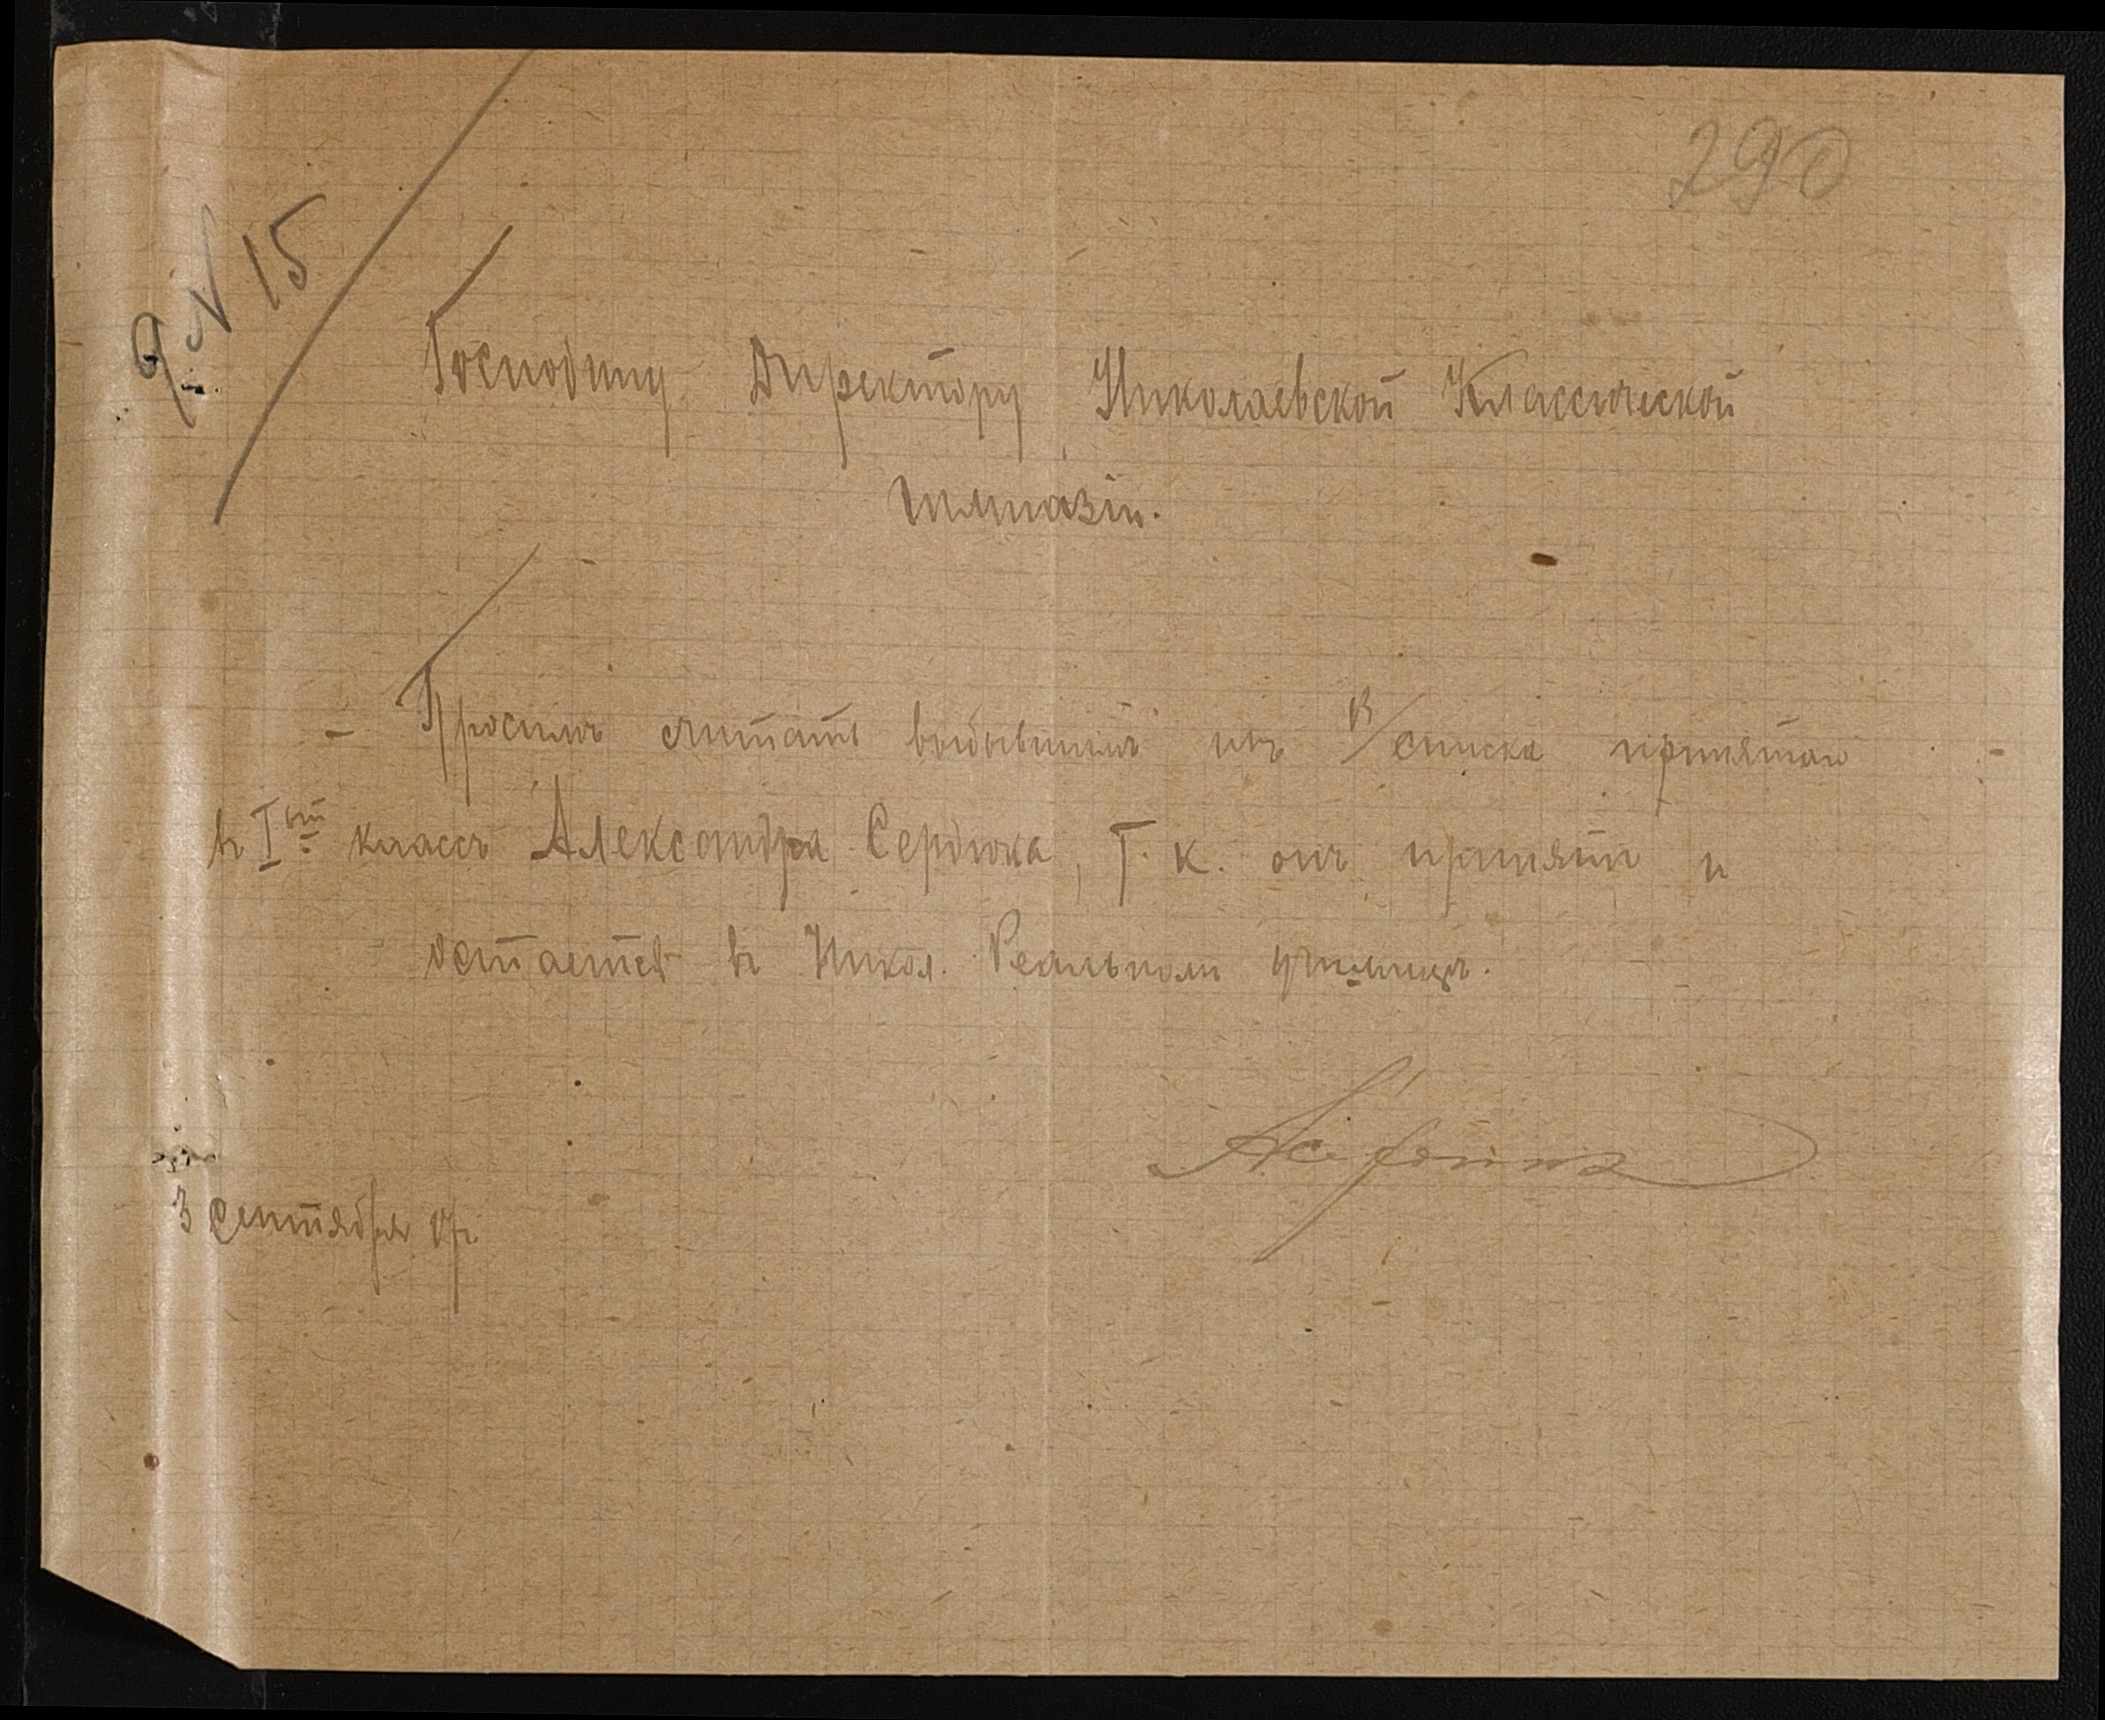 290
д. № 15
Господину Директору Николаевской Классической
Гимназіи.
- Просимъ считать выбывшимъ изъ В/списка принятаго -
въ Iый классъ Александра Сердюка, т. к. онъ принятъ и
остается въ Никол. Реальномъ училищѣ.
АСердюкъ
3 Сентября 17г.